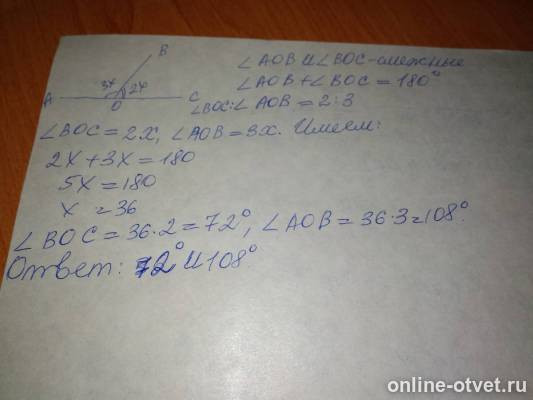 B
∠AOB и ∠BOC - смежные
3x 2x
∠AOB + ∠BOC = 180°
A O C
∠BOC : ∠AOB = 2 : 3
∠BOC = 2x, ∠AOB = 3x. Имеем:
2x + 3x = 180
5x = 180
x = 36
∠BOC = 36·2 = 72°, ∠AOB = 36·3 = 108°.
Ответ: 72° и 108°
online-otvet.ru